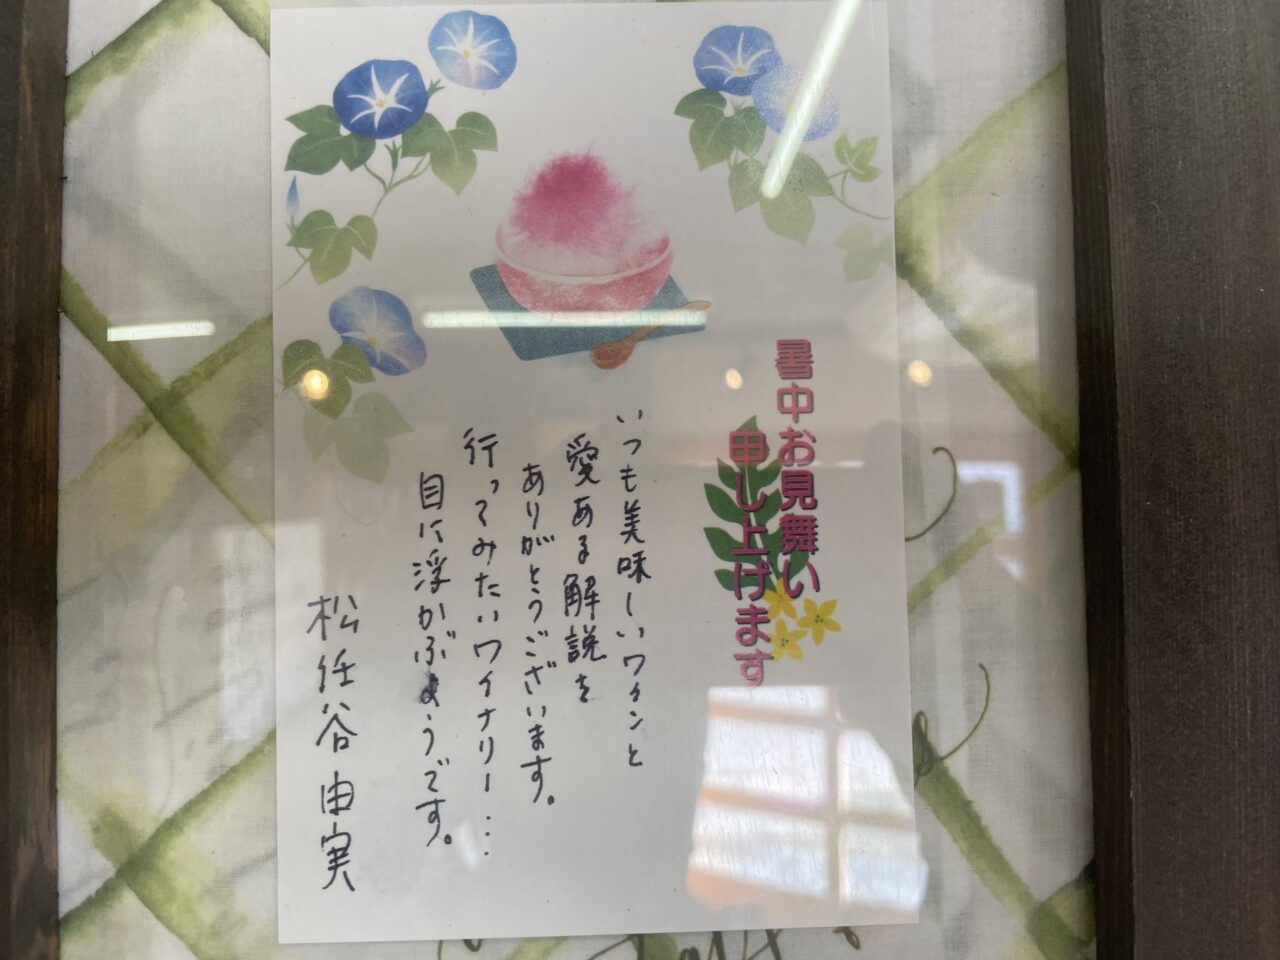 暑中お見舞い
申し上げます
いつも美味しいワインと
愛ある解説を
ありがとうございます。
行ってみたいワイナリー…
目に浮かぶようです。
松任谷由実